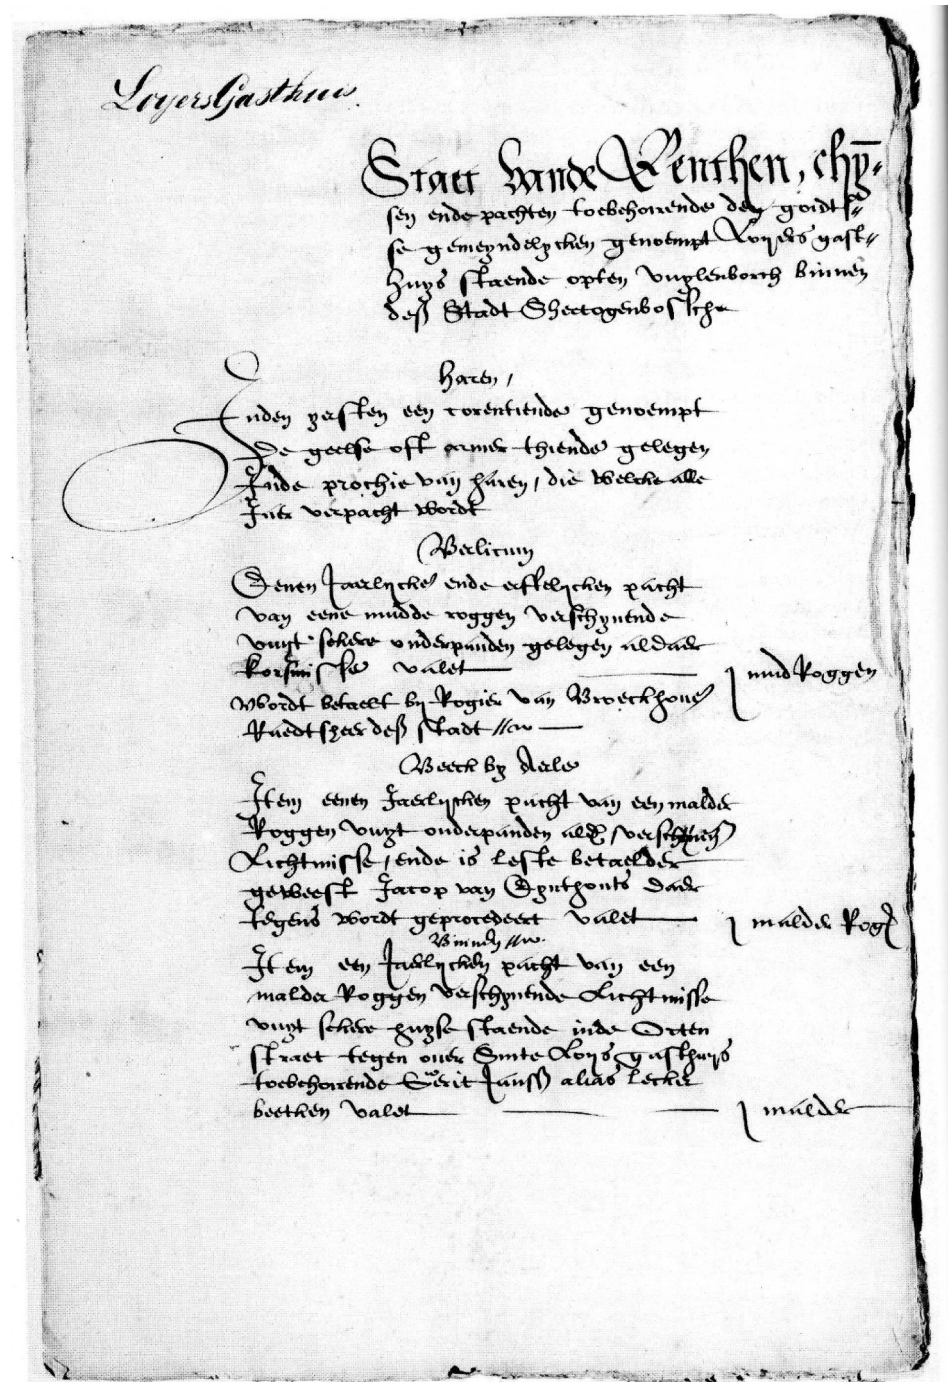 Loyers Gasthuis.
Staet vande Renthen, chÿ-
sen ende pachten toebehoirende den goidts-
se gemeyndelycken genoempt Loyers gast-
huys staende opten vuylenborch binnen
deß Stadt Shertogenbossche
Haren,
Inden yersten een corentiende genoempt
de geelse oft armer thiende gelegen
Inde prochie van haren, die welcke alle
Jaer verpacht wordt
Berlicum
Eenen Jaerlycke ende erffelycken pacht
van eene mudde roggen verschynende
vuyt sekere onderpanden gelegen aldaer
korsmisse valet j mud Roggen
Wordt betaelt by Rogier van Broeckhoue
Raedtsheer deß stadt
Beeck by Aerle
Item eenen Jaerlycken pacht van een malder
Roggen vuyt onderpanden ald verschynen
Lichtmisse, ende is leste betaelder
geweest Jacop van Eynthouts daer
tegens wordt geprocedeert valet j malder Rog
Binnen
Item een Jaerlycken pacht van een
malder Roggen verschynende Lichtmisse
vuyt sekere huyse staende inde Orten
straet tegen ouer Sinte Loys gasthuys
toebehoirende Gerit Janss alias lecker
beetken valet j malder